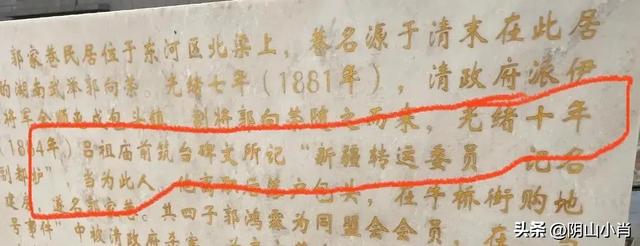 郭家巷民居位于东河区北梁上，巷名源于清末在此居
的湖南武举郭向荣。光绪七年（1881年），清政府派伊
将军金顺
郭向荣随之而来，光绪十年
（1884年）吕祖庙前筑台碑文所记“新疆转运委员 记名
副都护”，当为此人
包头，在牛桥街购地
建房，遂名郭家巷。其四子郭鸿霖为同盟会会员
号事件”中被清政府杀害
头条 @阴山小肖